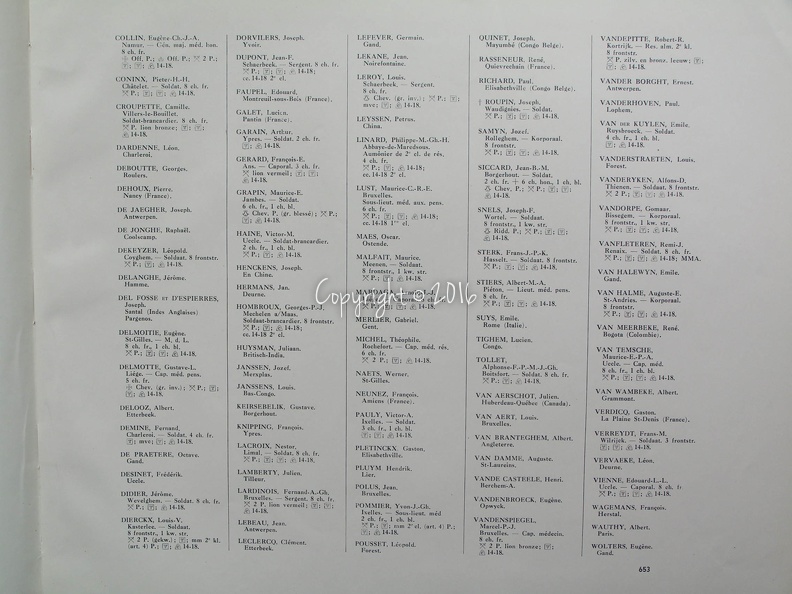 COLLIN, Eugène-Ch.-J.-A.
Namur. — Gén. maj. méd. hon.
8 ch. fr.
Off. P.; Off. P.; 2 P.;
14-18.
CONINX, Pieter-H.-H.
Châtelet. — Soldat, 8 ch. fr.
P.; 14-18.
CROUPETTE, Camille.
Villers-le-Bouillet.
Soldat-brancardier, 8 ch. fr.
P. lion bronze;
14-18.
DARDENNE, Léon.
Charleroi.
DEBOUTTE, Georges.
Roulers.
DEHOUX, Pierre.
Nancy (France).
DE JAEGHER, Joseph.
Antwerpen.
DE JONGHE, Raphaël.
Coolscamp.
DEKEYZER, Léopold.
Coyghem. — Soldaat, 8 frontstr.
P.; 14-18.
DELANGHE, Jérôme.
Hamme.
DEL FOSSE ET D'ESPIERRES,
Joseph.
Santal (Indes Anglaises)
Pargenos.
DELMOITIE, Eugène.
St-Gilles. — M. d. L.
8 ch. fr., 1 ch. bl.
P.; 14-18.
DELMOTTE, Gustave-L.
Liége. — Cap. méd. pens.
5 ch. fr.
Chev. (gr. inv.); P.;
14-18.
DELOOZ, Albert.
Etterbeek.
DEMINE, Fernand.
Charleroi. — Soldat, 4 ch. fr.
mve; 14-18.
DE PRAETERE, Octave.
Gand.
DESINET, Frédérik.
Uccle.
DIDIER, Jérôme.
Wevelghem. — Soldat, 8 ch. fr.
P.; 14-18.
DIERCKX, Louis-V.
Kasterlee. — Soldaat.
8 frontstr., 1 kw. str.
2 P. (gekw.); mm 2° kl.
(art. 4) P.; 14-18.
DORVILERS, Joseph.
Yvoir.
DUPONT, Jean-F.
Schaerbeek. — Sergent, 8 ch. fr.
P.; 14-18;
cc. 14-18 2° cl.
FAUPEL, Edouard.
Montreuil-sous-Bois (France).
GALET, Lucien.
Pantin (France).
GARAIN, Arthur.
Ypres. — Soldat, 2 ch. fr.
14-18.
GERARD, François-E.
Ans. — Caporal, 3 ch. fr.
lion vermeil;
14-18.
GRAPIN, Maurice-E.
Jambes. — Soldat.
6 ch. fr., 1 ch. bl.
Chev. P. (gr. blessé); P.;
14-18.
HAINE, Victor-M.
Uccle. — Soldat-brancardier.
2 ch. fr., 1 ch. bl.
14-18.
HENCKENS, Joseph.
En Chine.
HERMANS, Jan.
Deurne.
HOMBROUX, Georges-P.-J.
Mechelen a/Maas.
Soldaat-brancardier, 8 frontstr.
P.; 14-18;
cc. 14-18 2° cl.
HUYSMAN, Juliaan.
Britisch-India.
JANSSEN, Jozef.
Merxplas.
JANSSENS, Louis.
Bas-Congo.
KEIRSEBELIK, Gustave.
Borgerhout.
KNIPPING, François.
Ypres.
LACROIX, Nestor.
Limal. — Soldat, 8 ch. fr.
P.; 14-18.
LAMBERTY, Julien.
Tilleur.
LARDINOIS, Fernand-A.-Gh.
Bruxelles. — Sergent, 8 ch. fr.
2 P. lion vermeil;
14-18.
LEBEAU, Jean.
Antwerpen.
LECLERCQ, Clément.
Etterbeek.
LEFEVER, Germain.
Gand.
LEKANE, Jean.
Noirefontaine.
LEROY, Louis.
Schaerbeek. — Sergent.
8 ch. fr.
Chev. (gr. inv.); P.;
mve; 14-18.
LEYSSEN, Petrus.
China.
LINARD, Philippe-M.-Gh.-H.
Abbaye-de-Maredsous.
Aumônier de 2° cl. de rés.
4 ch. fr.
P.; 14-18;
cc. 14-18 2° cl.
LUST, Maurice-C.-R.-E.
Bruxelles.
Sous-lieut. méd. aux. pens.
6 ch. fr.
P.; 14-18;
cc. 14-18
MAES, Oscar.
Ostende.
MALFAIT, Maurice.
Meenen. — Soldaat.
8 frontstr., 1 kw. str.
P.; 14-18.
Copyright © 2016
MERLIER, Gabriel.
Gent.
MICHEL, Théophile.
Rochefort. — Cap. méd. rés.
6 ch. fr.
2 P.; 14-18.
NAETS, Werner.
St-Gilles.
NEUNEZ, François.
Amiens (France).
PAULY, Victor-A.
Ixelles. — Soldat.
3 ch. fr., 1 ch. bl.
14-18.
PLETINCKX, Gaston.
Elisabethville.
PLUYM Hendrik.
Lier.
POLUS, Jean.
Bruxelles.
POMMIER, Yvon-J.-Gh.
Ixelles. — Sous-lieut. méd
2 ch. fr., 1 ch. bl.
P.; mm 2° cl. (art. 4) P.;
14-18.
POUSSET, Léopold.
Forest.
QUINET, Joseph.
Mayumbé (Congo Belge).
RASSENEUR, René.
Quievrechain (France).
RICHARD, Paul.
Elisabethville (Congo Belge).
† ROUPIN, Joseph.
Waudignies. — Soldat.
14-18.
SAMYN, Jozef.
Rolleghem. — Korporaal.
8 frontstr.
P.; 14-18.
SICCARD, Jean-B.-M.
Borgerhout. — Soldat.
2 ch. fr. + 6 ch. hon., 1 ch. bl.
Chev. P.; P.;
14-18.
SNELS, Joseph-F.
Wortel. — Soldaat.
8 frontstr., 1 kw. str.
Ridd. P.; P.;
14-18.
STERK, Frans-J.-P.-K.
Hasselt. — Soldaat, 8 frontstr.
P.; 14-18.
STIERS, Albert-M.-A.
Piéton. — Lieut. méd. pens.
8 ch. fr.
P.; 14-18.
SUYS, Emile.
Rome (Italie).
TIGHEM, Lucien.
Congo.
TOLLET,
Alphonse-F.-P.-M.-J.-Gh.
Boitsfort. — Soldat, 8 ch. fr.
P.; 14-18.
VAN AERSCHOT, Julien.
Huberdeau-Québec (Canada).
VAN AERT, Louis.
Bruxelles.
VAN BRANTEGHEM, Albert.
Angleterre.
VAN DAMME, Auguste.
St-Laureins.
VANDE CASTEELE, Henri.
Berchem-A.
VANDENBROECK, Eugène.
Opwyck.
VANDENSPIEGEL,
Marcel-P.-J.
Bruxelles. — Cap. médecin.
8 ch. fr.
2 P. lion bronze;
14-18.
VANDEPITTE, Robert-R.
Kortrijk. — Res. alm. 2° kl.
8 frontstr.
P. zilv. en bronz. leeuw;
14-18.
VANDER BORGHT, Ernest.
Antwerpen.
VANDERHOVEN, Paul.
Lophem.
VAN DER KUYLEN, Emile.
Ruysbroeck. — Soldat.
4 ch. fr., 1 ch. bl.
14-18.
VANDERSTRAETEN, Louis.
Forest.
VANDERYKEN, Alfons-D.
Thienen. — Soldaat, 8 frontstr.
2 P.; 14-18.
VANDORPE, Gomaar.
Bissegem. — Korporaal.
8 frontstr., 1 kw. str.
P.; 14-18.
VANFLETEREN, Remi-J.
Renaix. — Soldat, 8 ch. fr.
P.; 14-18; MMA.
VAN HALEWYN, Emile.
Gand.
VAN HALME, Auguste-E.
St-Andries. — Korporaal.
8 frontstr.
P.; 14-18.
VAN MEERBEKE, René.
Bogota (Colombie).
VAN TEMSCHE,
Maurice-E.-P.-A.
Uccle. — Cap. méd.
8 ch. fr., 1 ch. bl.
P.; 14-18.
VAN WAMBEKE, Albert.
Grammont.
VERDICQ, Gaston.
La Plaine St-Denis (France).
VERREYDT, Frans-M.
Wilrijck. — Soldaat, 3 frontstr.
14-18.
VERVAEKE, Léon.
Deurne.
VIENNE, Edouard-L.-L.
Uccle. — Caporal, 8 ch. fr.
P.; 14-18.
WAGEMANS, François.
Herstal.
WAUTHY, Albert.
Paris.
WOLTERS, Eugène.
Gand.
653